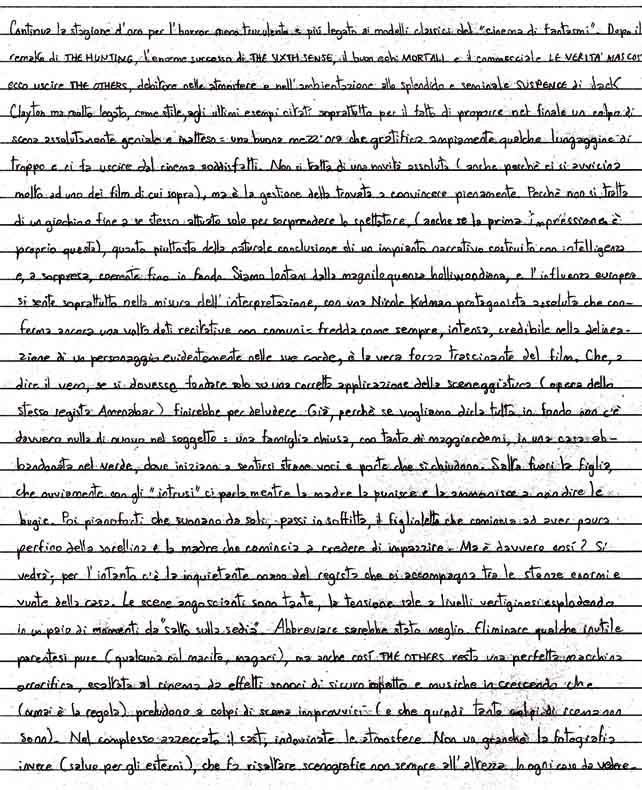 Continua la stagione d'oro per l'horror meno truculento e più legato ai modelli classici del "cinema di fantasmi". Dopo il
remake di THE HUNTING, l'enorme successo di THE SIXTH SENSE, il buon echi MORTALI e il commerciale LE VERITA' NASCOS
ecco uscire THE OTHERS, debitore nelle atmosfere e nell'ambientazione allo splendido e seminale SUSPENSE di Jack
Clayton ma molto legato, come stile, agli ultimi esempi citati soprattutto per il fatto di proporre nel finale un colpo di
scena assolutamente geniale e inatteso: una buona mezz'ora che gratifica ampiamente qualche lungaggine di
troppo e ci fa uscire dal cinema soddisfatti. Non si tratta di una novità assoluta (anche perchè ci si avvicina
molto ad uno dei film di cui sopra), ma è la gestione della trovata a convincere pienamente. Perchè non si tratta
di un giochino fine a se stesso attuato solo per sorprendere lo spettatore, (anche se la prima impressione è
proprio questa), quanto piuttosto della naturale conclusione di un impianto narrativo costruito con intelligenza
e, a sorpresa, coerente fino in fondo. Siamo lontani dalla magniloquenza hollwoodiana, e l'influenza europea
si sente soprattutto nella misura dell'interpretazione, con una Nicole Kidman protagonista assoluta che con-
ferma ancora una volta doti recitative non comuni: fredda come sempre, intensa, credibile nella delinea-
zione di un personaggio evidentemente nelle sue corde, è la vera forza trascinante del film. Che, a
dire il vero, se si dovesse fondare solo su una corretta applicazione della sceneggiatura (opera dello
stesso regista Amenabar) finirebbe per deludere. Già, perchè se vogliamo dirla tutta in fondo non c'è
davvero nulla di nuovo nel soggetto: una famiglia chiusa, con tanto di maggiordomi, in una casa ab-
bandonata nel verde, dove iniziano a sentirsi strane voci e porte che si chiudono. Salta fuori la figlia,
che ovviamente con gli "intrusi" ci parla mentre la madre la punisce e la ammonisce a non dire le
bugie. Poi pianoforti che suonano da soli, passi in soffitta, il figlioletto che comincia ad aver paura
perfino della sorellina e la madre che comincia a credere di impazzire. Ma è davvero così? Si
vedrà; per l'intanto c'è la inquietante mano del regista che ci accompagna tra le stanze enormi e
vuote della casa. Le scene angoscianti sono tante, la tensione sale a livelli vertiginosi esplodendo
in un paio di momenti da "salto sulla sedia". Abbreviare sarebbe stato meglio. Eliminare qualche inutile
parentesi pure (qualcuna col marito, magari), ma anche così THE OTHERS resta una perfetta macchina
orrorifica, esaltata al cinema da effetti sonori di sicuro impatto e musiche in crescendo che
(ormai è la regola) preludono a colpi di scena improvvisi (e che quindi tanto colpi di scena non
sono). Nel complesso azzeccato il cast, indovinate le atmosfere. Non un granchè la fotografia
invece (salvo per gli esterni), che fa risaltare scenografie non sempre all'altezza. In ogni caso da vedere.